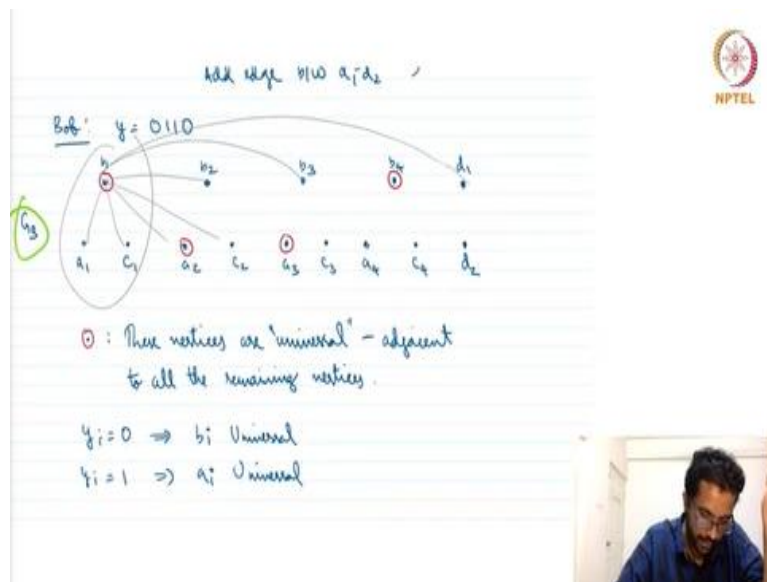 Add edge b/w ai-d2
NPTEL
Bob: y = 0110
b1 b2 b3 b4 d1
G3
a1 c1 a2 c2 a3 c3 a4 c4 d2
: These vertices are "universal" - adjacent
to all the remaining vertices.
yi = 0 ⇒ bi Universal
yi = 1 ⇒ ai Universal